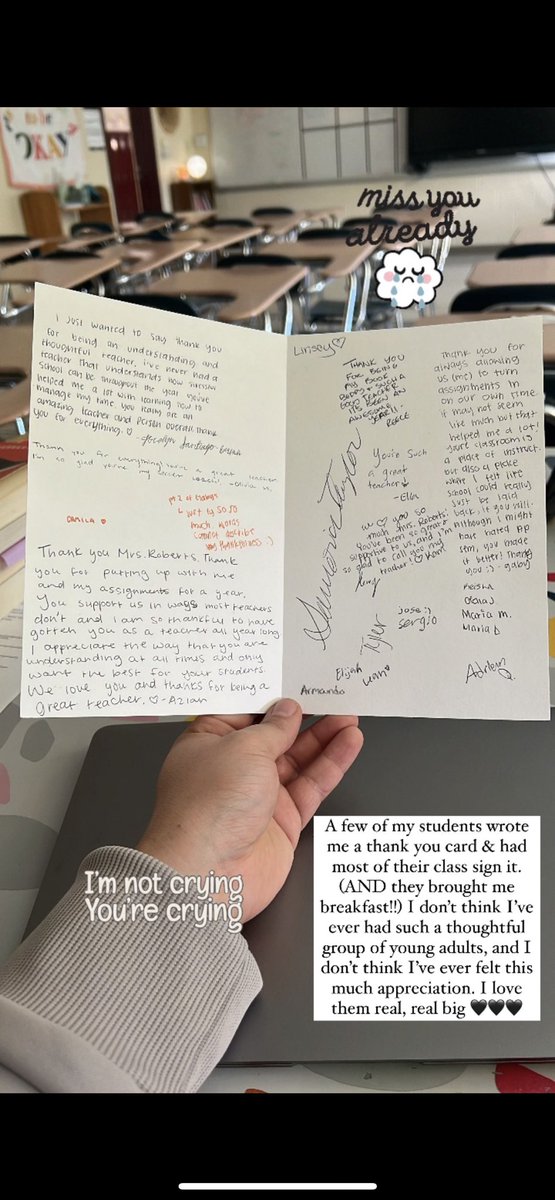 to be
OKAY
miss you
already
I just wanted to say thank you
for being an understanding and
thoughtful teacher, I've never had a
teacher that understands how stressful
school can be throughout the year. You've
helped me a lot with learning how to
manage my time. You really are an
amazing teacher and person overall. Thank
you for everything. ♡
Thank you for everything! You're a great teacher
I'm so glad you're my teacher
Camila ♡
Thank you Mrs. Roberts. Thank
you for putting up with me
and my assignments for a year.
You support us in ways most teachers
don't and I am so thankful to have
gotten you as a teacher all year long
I appreciate the way that you are
understanding at all times and only
want the best for your students.
We love you and thanks for being a
great teacher. ♡ -Azlan
Linsey ♡
THANK YOU
FOR BEING
MY
SUCH A
GOOD TEACHER
IT'S BEEN AN
AWESOME
YEAR!!
PEACE
You're such
a great
teacher
-Ella
W ♡ you so
much Mrs. Roberts!
You've been so great &
supportive to us, and I'm
so glad to call you my
teacher!
Tyler
Jose :)
Sergio
Elijah
Armando
Thank you for
always allowing
us (me) to turn
assignments in
on our own time.
it may not seem
like much but that
helped me a lot!
your classroom is
a place of instruct.
but also a place
where I felt like
school could really
just be laid
back, if you will.
Although I might
have hated AP
sem, you made
it better! Thank
you :) - gaby
Keisha
Maria M.
Maria D
I'm not crying
You're crying
A few of my students wrote
me a thank you card & had
most of their class sign it.
(AND they brought me
breakfast!!) I don't think I've
ever had such a thoughtful
group of young adults, and I
don't think I've ever felt this
much appreciation. I love
them real, real big 🖤🖤🖤